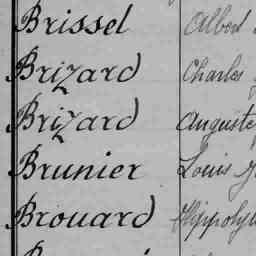 Brissel Albert
Brizard Charles
Brizard Auguste
Brunier Louis
Brouard Hippolyte